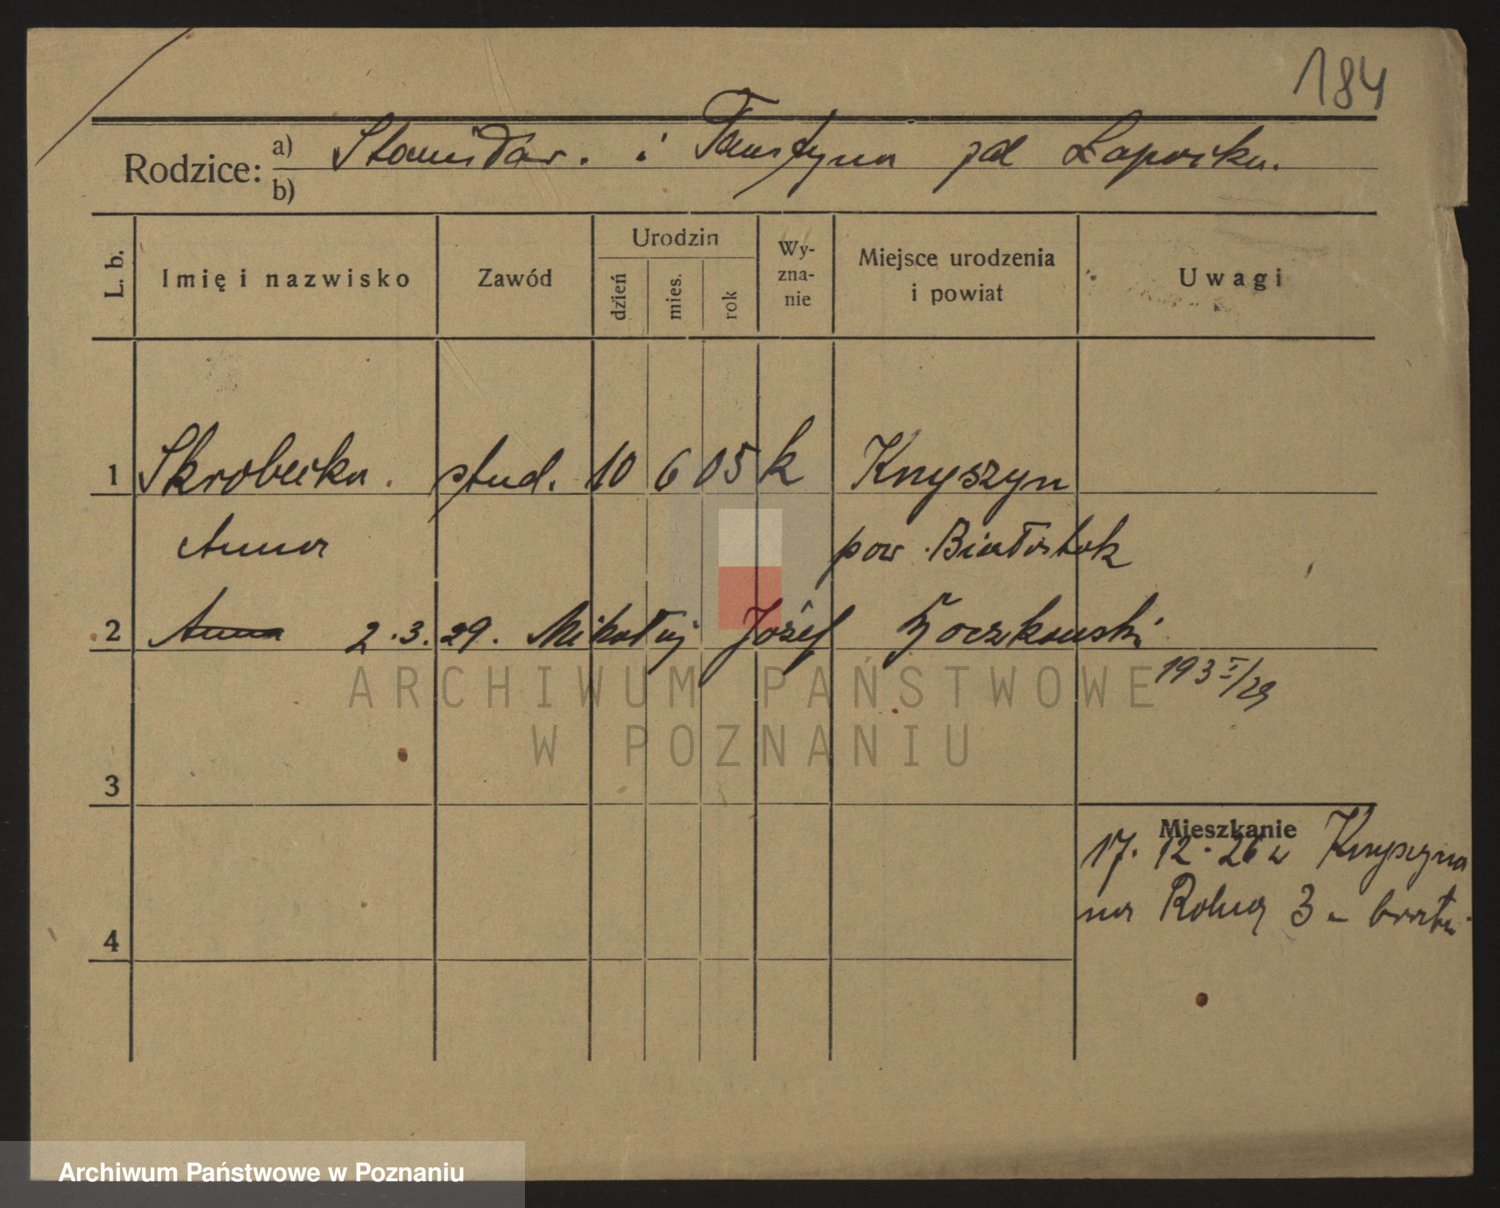 184
Rodzice: a) Stanisław. i Faustyna zd Łapicka.
b)
L. b.
Imię i nazwisko
Zawód
Urodzin
dzień
mies.
rok
Wy-
zna-
nie
Miejsce urodzenia
i powiat
Uwagi
1 Skrobecka. stud. 10 6 05 k Knyszyn
Anna pow. Białostok
2 Anna 2.3.29. Mikołaj Józef
193 I/29
ARCHIWUM PAŃSTWOWE
W POZNANIU
3
Mieszkanie
17. 12. 26 z Knyszyna
na Rolna 3 -
4
Archiwum Państwowe w Poznaniu